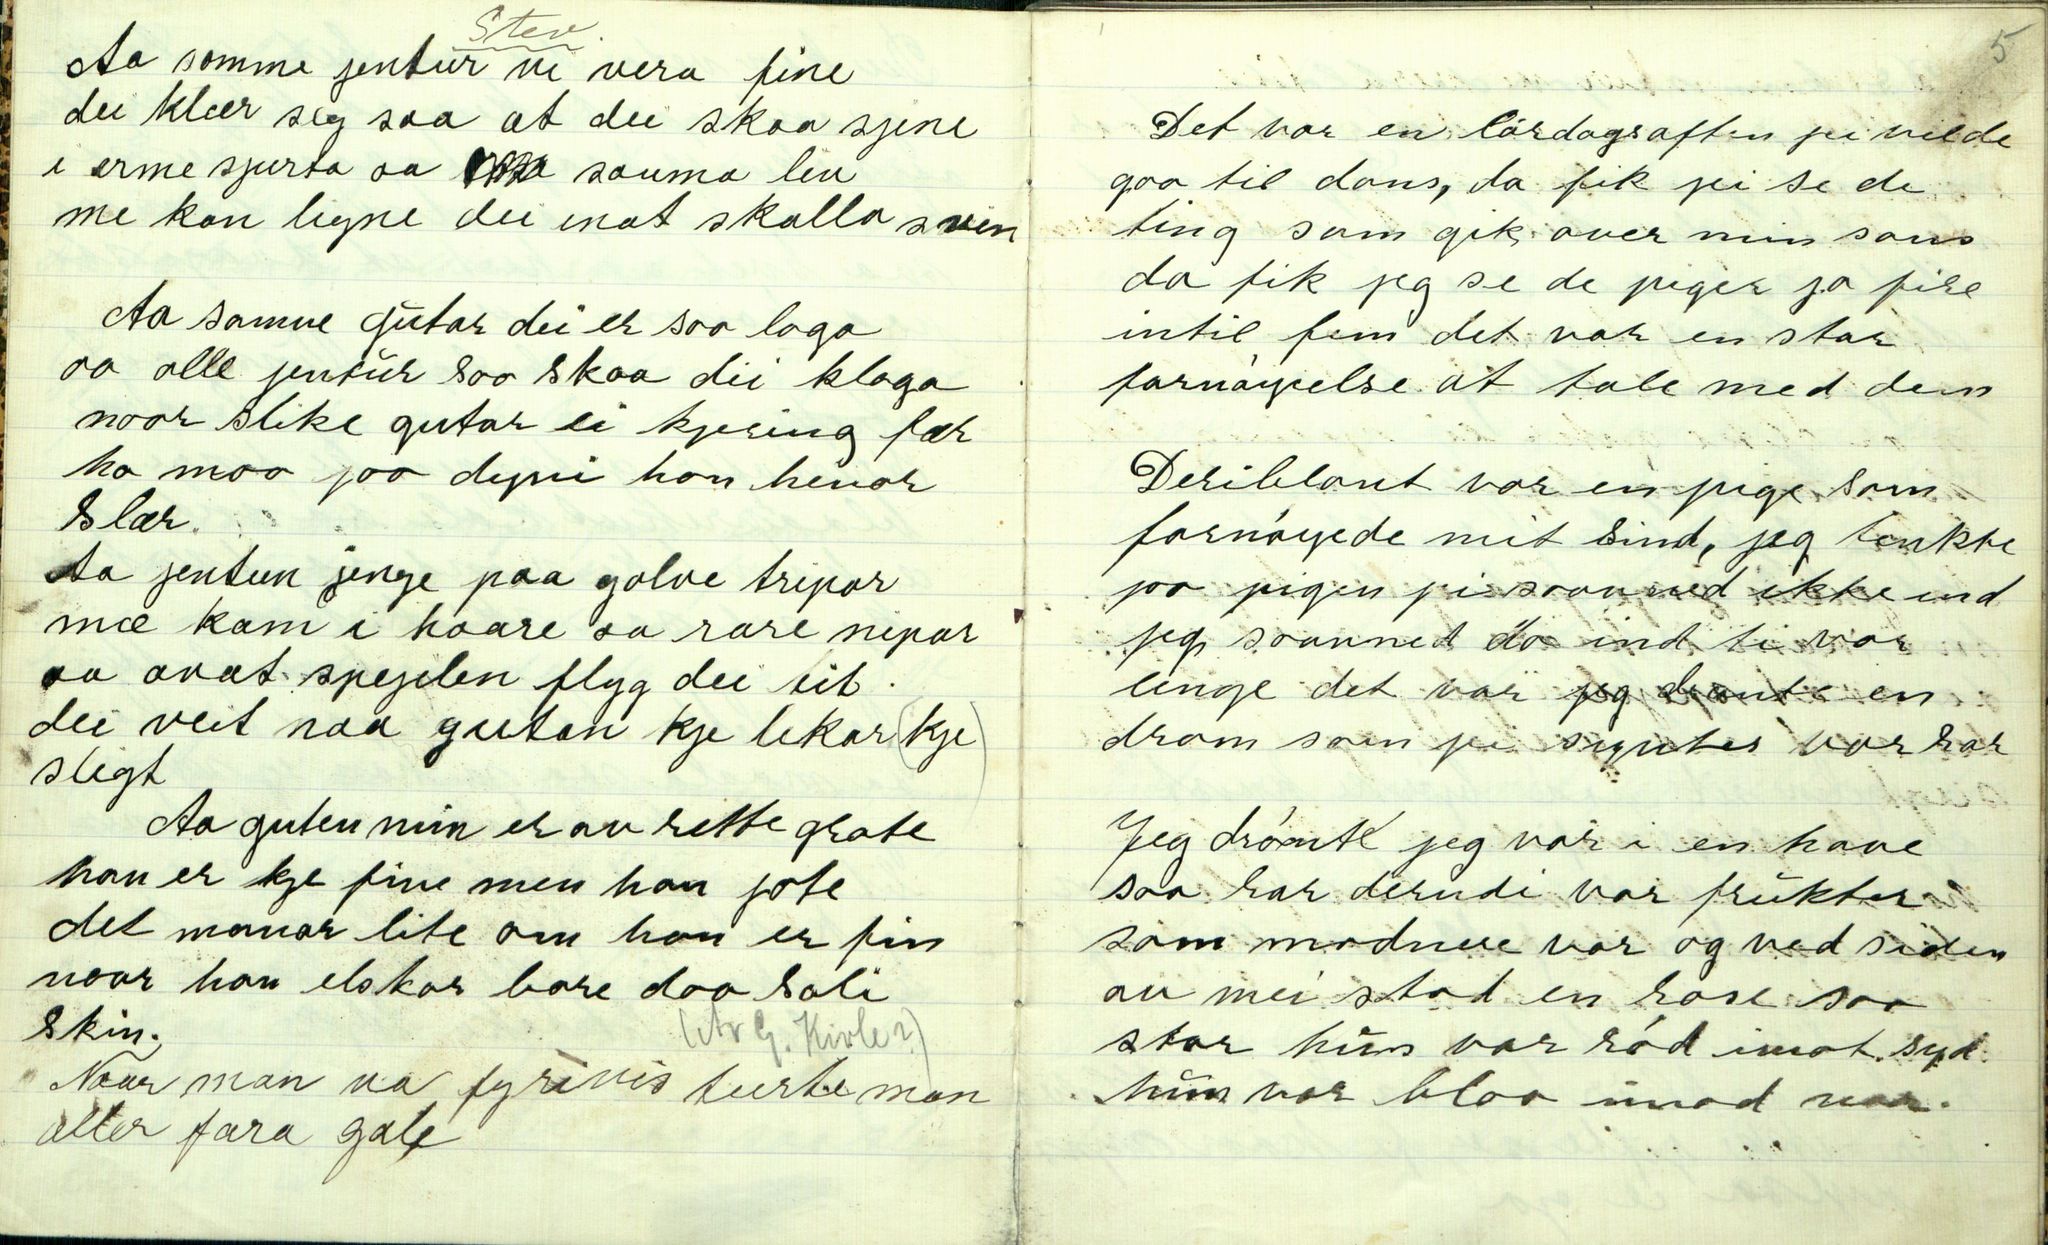 Stev.
Aa somme jentur vi vera fine
dei klær seg saa at dei skaa sjine
i ermesjurta aa sauma lin
me kan ligne dei mot skalla svin
Aa somme gutar dei er saa laga
aa alle jentur saa skaa dei klaga
naar slike gutar ei kjering fær
ho maa jaa dyni han henar
slær.
Aa jentun jenge paa golve tripar
mæ kam i haare aa rare nipar
aa avat spejelen flyg dei tit
dei veit naa gutan kje likar (kje)
sligt
Aa guten min er av rette grate
han er kje fine men han jote
det monar lite om han er fin
naar han elskar bare daa sali
skin.
(Av G. Kivle?)
Naar man va fyrivis turte man
alter fara gale
5
Det var en lördagsaften jei vilde
gaa til dans, da fik jei se de
ting som gik over min sans
da fik jeg se de piger ja fire
intil fem det var en stor
fornöyelse at tale med dem
Deriblant var en pige som
fornöyede mit sind, jeg tenkte
paa pigen jei saavned ikke ind
jeg saavned da ind ti var
lenge det var jeg dromte en
drom som jei syntes var rar
Jeg drömte jeg var i en have
saa rar derudi var frukter
som modnere var og ved siden
av mei stod en rose saa
stor hun var röd imot syd
hun var blaa imod nor.